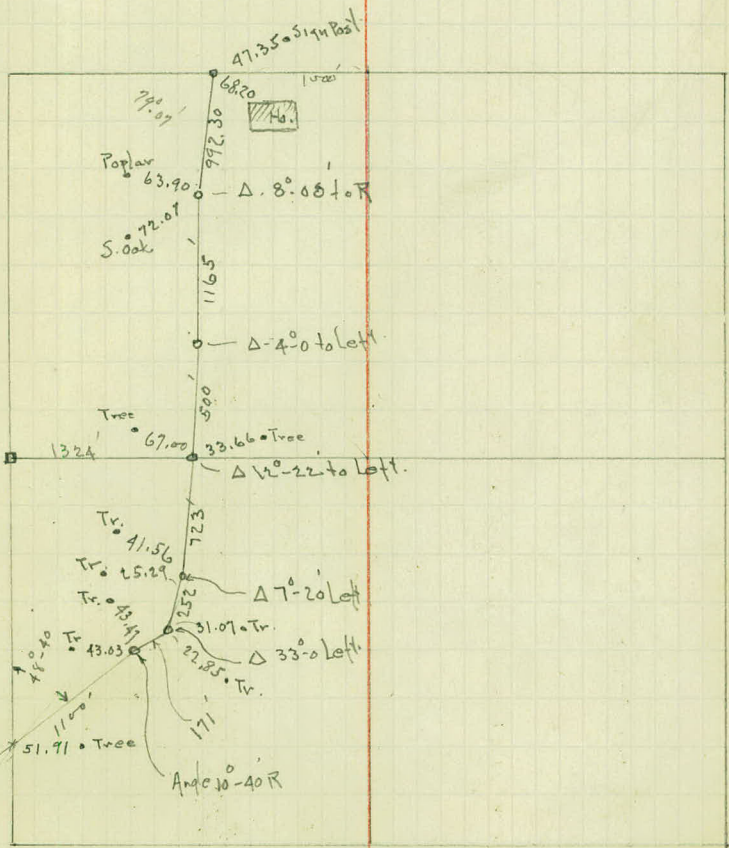 47.35 Sign Post
68.20
1500'
79°.07'
Ho.
992.30
Poplar
63.90
Δ. 8°.08' to R
72.07
S. oak
1165
Δ-4°-0 to Left.
500
Tree
67.00
33.66 Tree
1324'
Δ 12°-22' to Left.
723'
Tr.
41.56
Tr. 25.29
Δ 7°-20' Left
252
Tr. 43.47
31.07 Tr.
Tr 43.03
Δ 33°-0 Left.
22.85 Tr.
48°-40
171'
1100'
51.91 Tree
Angle 10°-40' R